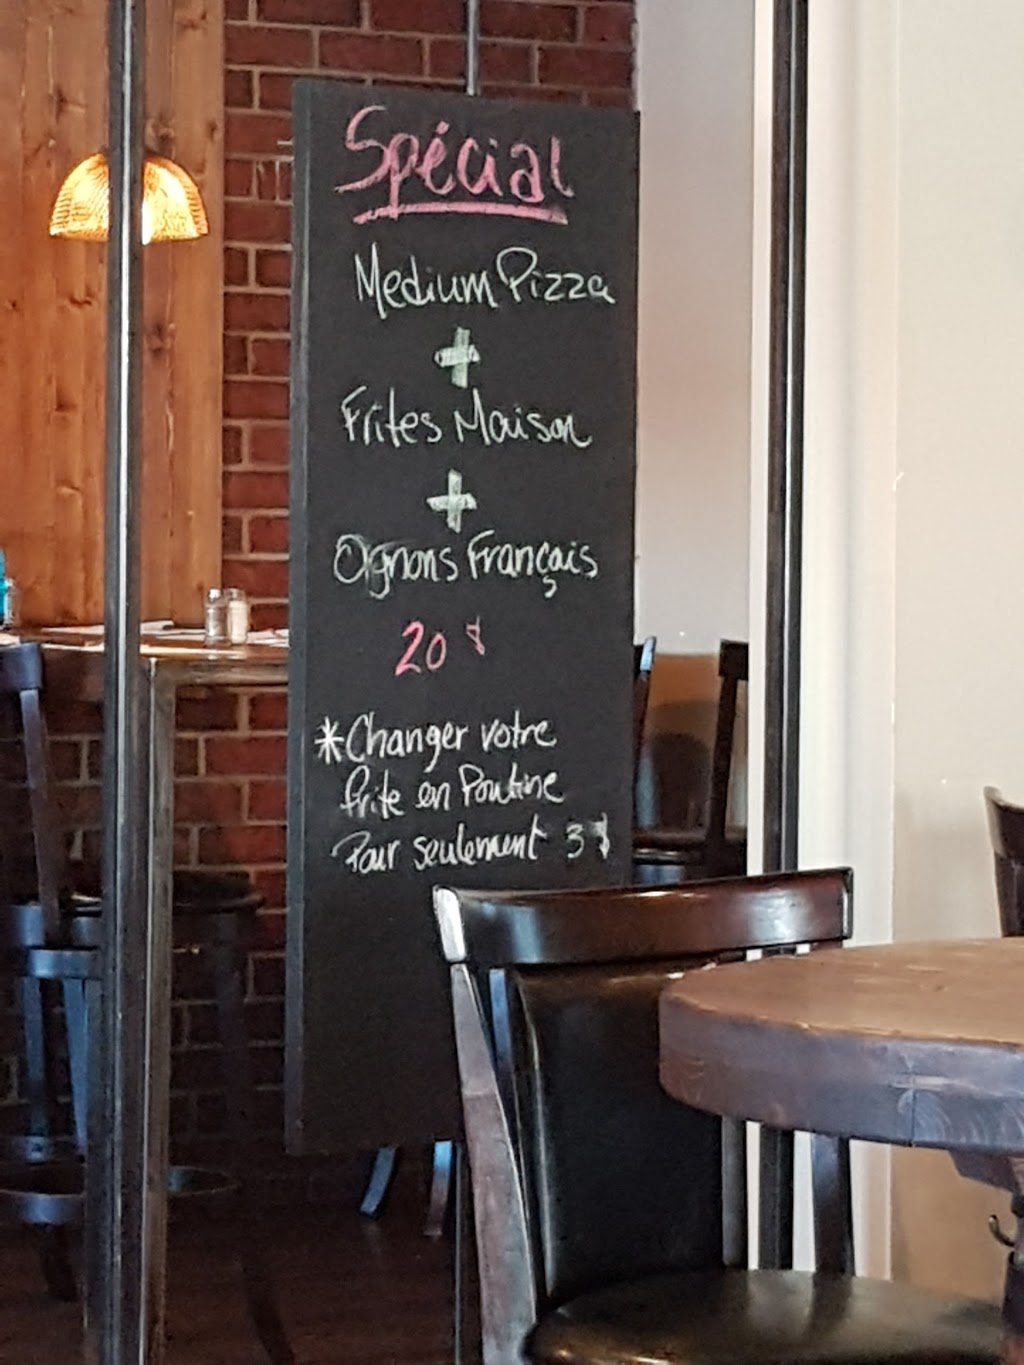 Spécial
Medium Pizza
+
Frites Maison
+
Ognons Français
20 $
*Changer votre
frite en Poutine
Pour seulement 3 $